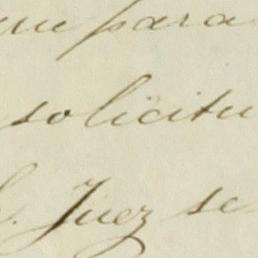 que para
solicitu
S. Juez se